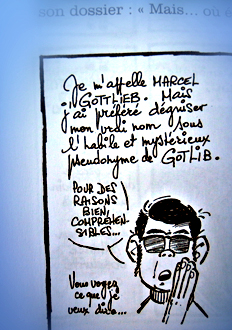 son dossier : « Mais... où e
Je m'appelle MARCEL
GOTTLIEB. Mais
j'ai préféré déguiser
mon vrai nom sous
l'habile et mystérieux
pseudonyme de GOTLIB.
POUR DES
RAISONS
BIEN
COMPRÉHEN-
SIBLES...
Vous voyez
ce que je
veux dire...